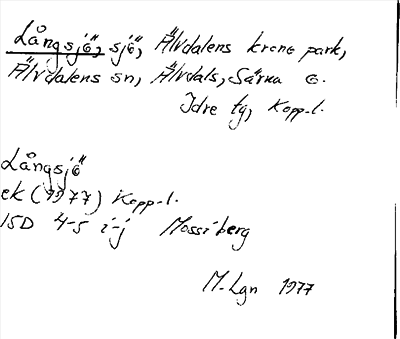 Långsjö, sjö, Älvdalens krono park,
Älvdalens sn, Älvdals, Särna o.
Idre tg, Kopp.l.
Långsjö
ek (1977) Kopp.l.
15D 4-5 i-j Mossiberg
M. Lgn 1977